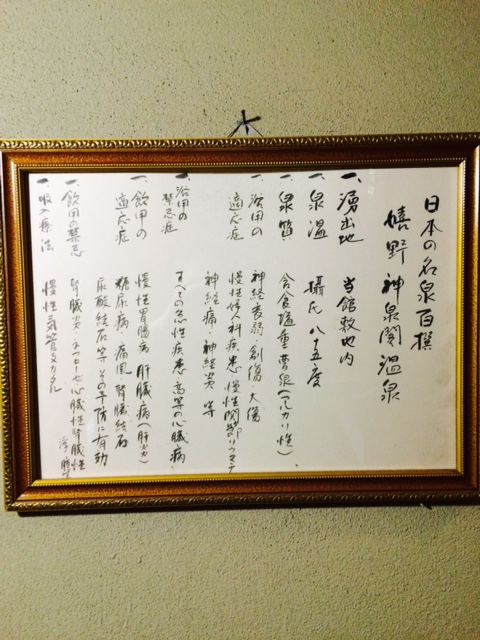 日本の名泉百撰
嬉野 神泉閣温泉
一、湧出地 当館敷地内
一、泉温 摂氏 八十五度
一、泉質 含食塩重曹泉(アルカリ性)
一、浴用の適応症 神経衰弱 創傷 火傷
慢性婦人科疾患 慢性関節リウマチ
神経痛 神経炎 等
一、浴用の禁忌症 すべての急性疾患 高等の心臓病
一、飲用の適応症 慢性胃腸病 肝臓病(肝炎)
糖尿病 痛風 腎臓結石
尿酸結石等 その予防に有効
一、飲用の禁忌 腎臓炎 ネフローゼ 心臓性腎臓性
浮腫
一、吸入療法 慢性気管支カタル